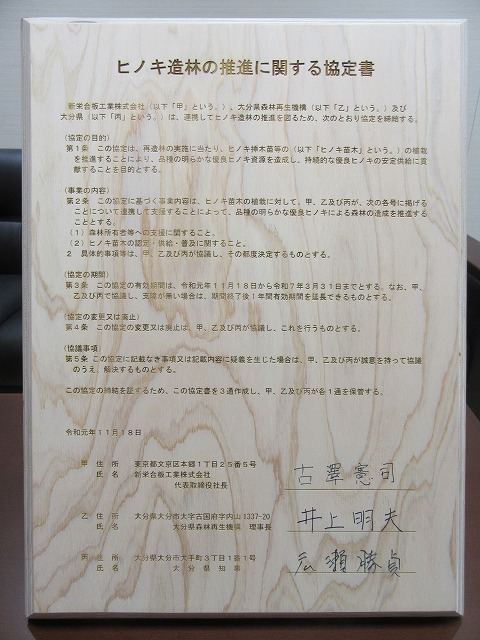 ヒノキ造林の推進に関する協定書
新栄合板工業株式会社（以下「甲」という。）、大分県森林再生機構（以下「乙」という。）及び
大分県（以下「丙」という。）は、連携してヒノキ造林の推進を図るため、次のとおり協定を締結する。
（協定の目的）
第１条　この協定は、再造林の実施に当たり、ヒノキ挿木苗等の（以下「ヒノキ苗木」という。）の植栽
を推進することにより、品種の明らかな優良ヒノキ資源を造成し、持続的な優良ヒノキの安定供給に貢
献することを目的とする。
（事業の内容）
第２条　この協定に基づく事業内容は、ヒノキ苗木の植栽に対して、甲、乙及び丙が、次の各号に掲げる
ことについて連携して支援することによって、品種の明らかな優良ヒノキによる森林の造成を推進する
こととする。
（１）森林所有者等への支援に関すること。
（２）ヒノキ苗木の認定・供給・普及に関すること。
２　具体的事項等は、甲、乙及び丙が協議し、その都度決定するものとする。
（協定の期間）
第３条　この協定の有効期間は、令和元年１１月１８日から令和７年３月３１日までとする。なお、甲、
乙及び丙で協議し、支障が無い場合は、期間終了後１年間有効期間を延長できるものとする。
（協定の変更又は廃止）
第４条　この協定の変更又は廃止は、甲、乙及び丙が協議し、これを行うものとする。
（協議事項）
第５条 この協定に記載なき事項又は記載内容に疑義を生じた場合は、甲、乙及び丙が誠意を持って協議
のうえ、解決するものとする。
この協定の締結を証するため、この協定書を３通作成し、甲、乙及び丙が各１通を保管する。
令和元年１１月１８日
甲　住　所　東京都文京区本郷１丁目２５番５号
氏　名　新栄合板工業株式会社
代表取締役社長　古澤憲司
乙　住　所　大分県大分市大字古国府字内山1337-20
氏　名　大分県森林再生機構　理事長　井上明夫
丙　住　所　大分県大分市大手町３丁目１番１号
氏　名　大分県知事　広瀬勝貞